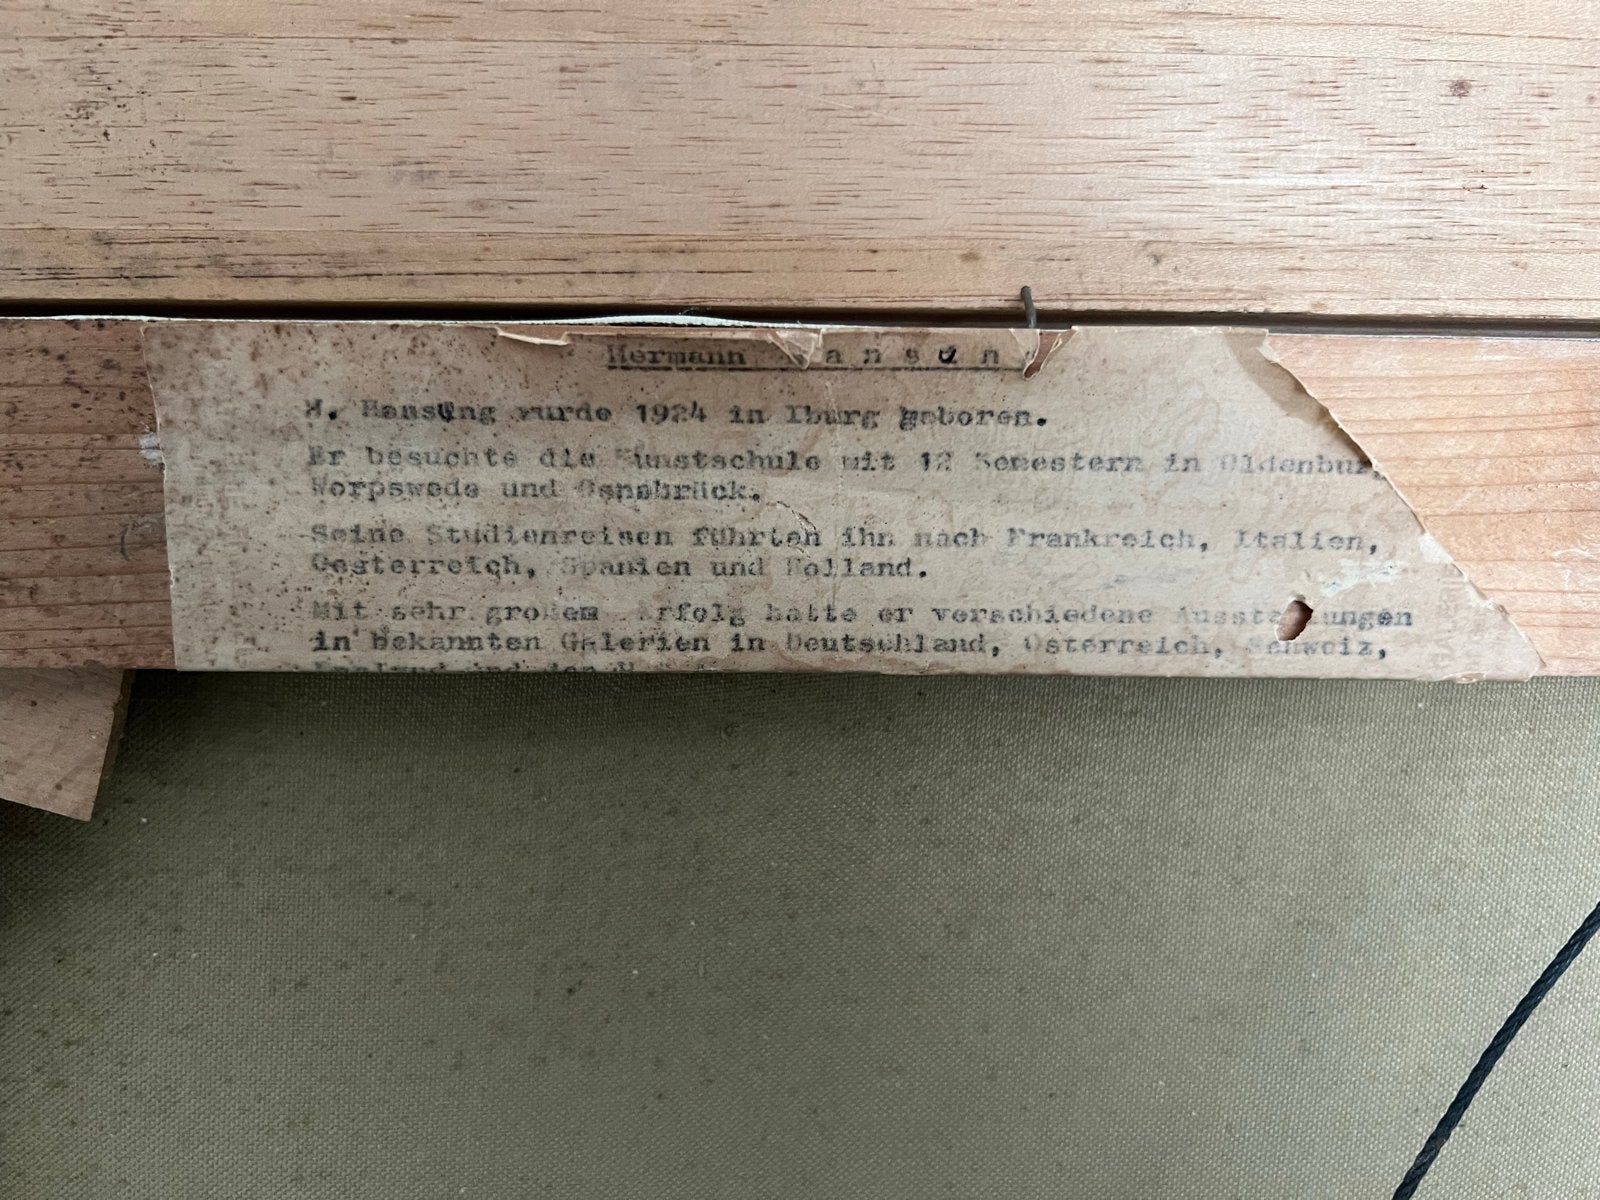 Hermann Hansun
H. Hansung wurde 1924 in Iburg geboren.
Er besuchte die Kunstschule mit 12 Semestern in Oldenburg
Worpswede und Osnabrück.
Seine Studienreisen führten ihn nach Frankreich, Italien,
Oesterreich, Spanien und Holland.
Mit sehr großem Erfolg hatte er verschiedene Ausstellungen
in bekannten Galerien in Deutschland, Österreich, Schweiz,